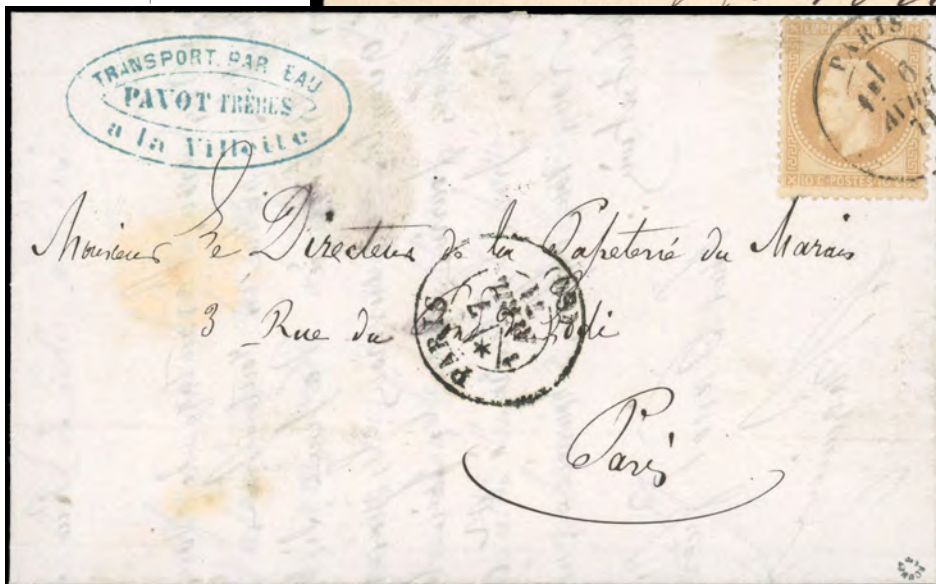 TRANSPORT PAR EAU
PAVOT FRÈRES
a la Villette
PARIS
6
AVRIL
71
10 C · POSTES · 10 C
Monsieur Le Directeur de la Papeterie du Marais
3 Rue du Pont de Lodi
PARIS (60)
7
AVRIL
71
Paris